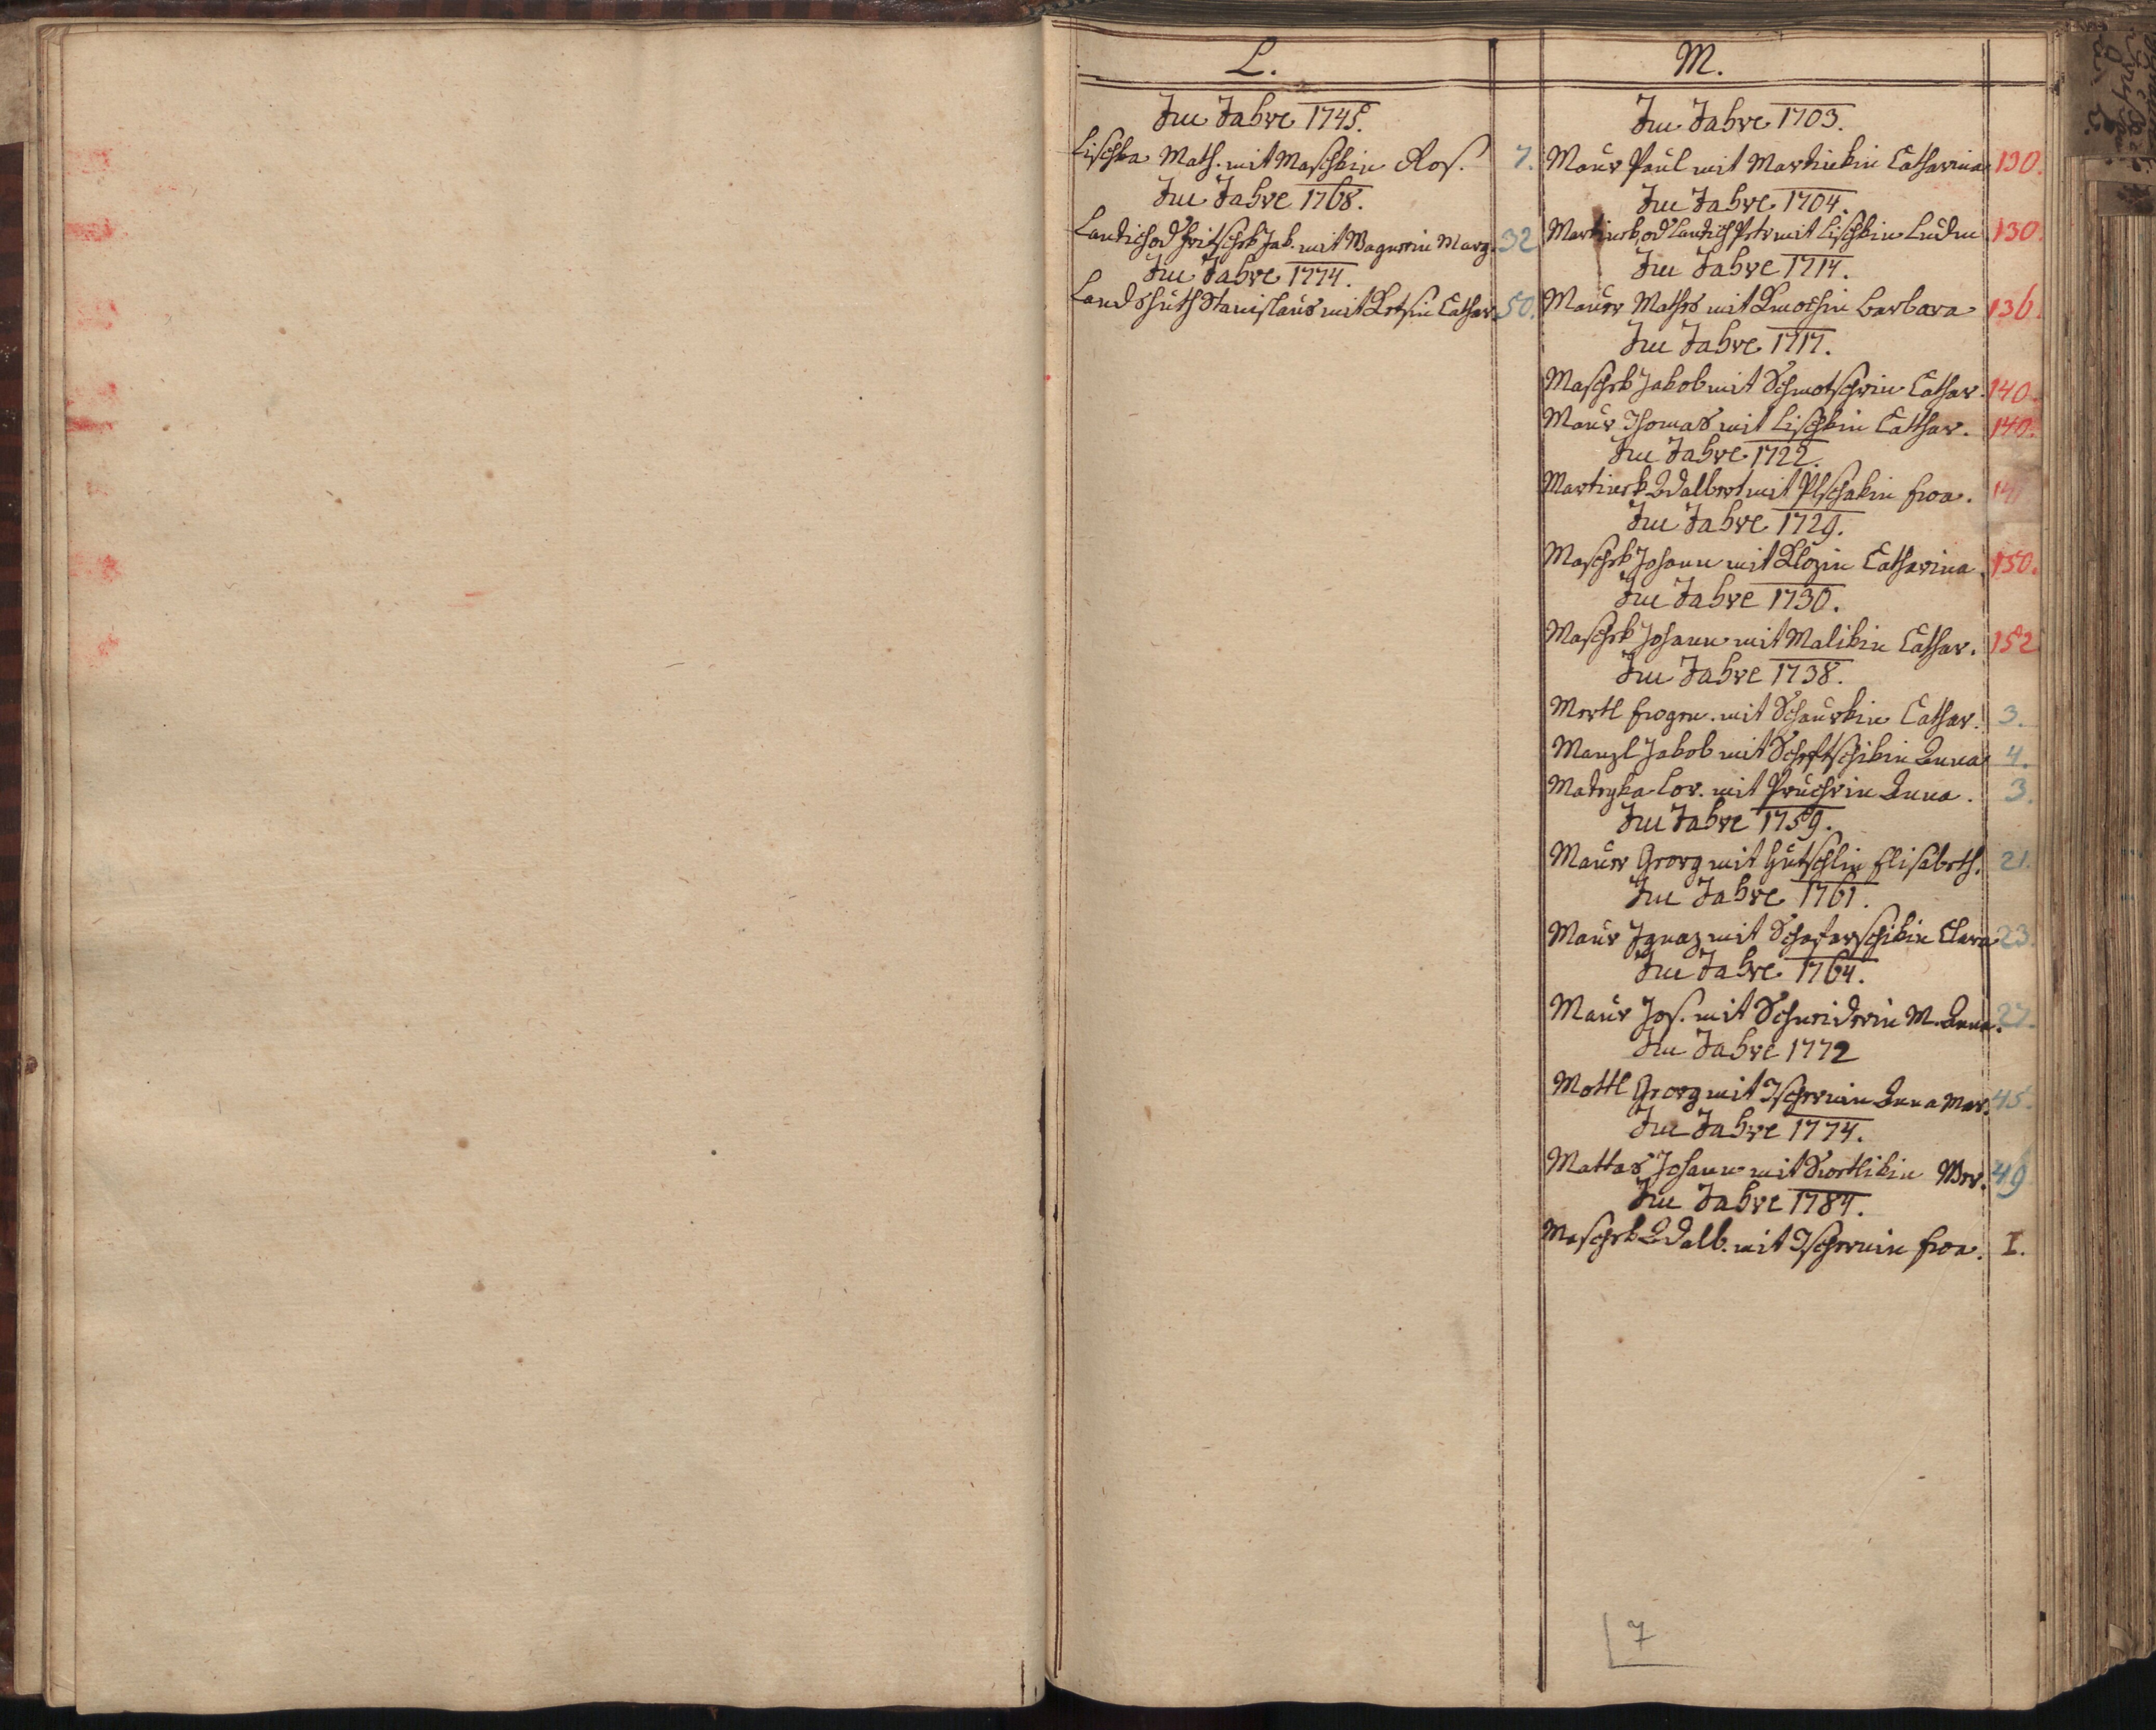 L.
Im Jahre 1745.
Lischka Math. mit Maschkin Ros. 7.
Im Jahre 1768.
Landich od Fritschek Jak. mit Wagnerin Marg. 32
Im Jahre 1774.
Landshuth Stanislaus mit Ketzin Cathar. 50.
M.
Im Jahre 1703.
Maur Paul mit Martinkin Catharina 130.
Im Jahre 1704.
Martinek od Landich Petr mit Lischkin Ludm 130.
Im Jahre 1714.
Maurer Mathes mit Kmochin Barbara 136.
Im Jahre 1717.
Maschek Jakob mit Schmotschrin Cathar. 140.
Maur Thomas mit Lischkin Cathar. 140.
Im Jahre 1722.
Martinek Adalbert mit Plschakin Eva.
Im Jahre 1729.
Maschek Johann mit Klozin Catharina. 150.
Im Jahre 1730.
Maschek Johann mit Malikin Cathar. 152
Im Jahre 1738.
Mertl mit Schaurkin Cathar. 3.
Manzl Jakob mit Scheftschikin Anna 4.
Matezka Lor. mit Pruchrin Anna. 3.
Im Jahre 1759.
Maurer Georg mit Hutschlin Elisabeth. 21.
Im Jahre 1761.
Maur Ignaz mit Schafarschikin Clara 23.
Im Jahre 1764.
Maur Jos. mit Schneiderin M. Anna. 27.
Im Jahre 1772
Mottl Georg mit Tschernin Anna Mar. 45.
Im Jahre 1774.
Mattas Johann mit Swetlikin Ver. 49
Im Jahre 1784.
Maschek Adalb. mit Tschernin Eva. I.
7